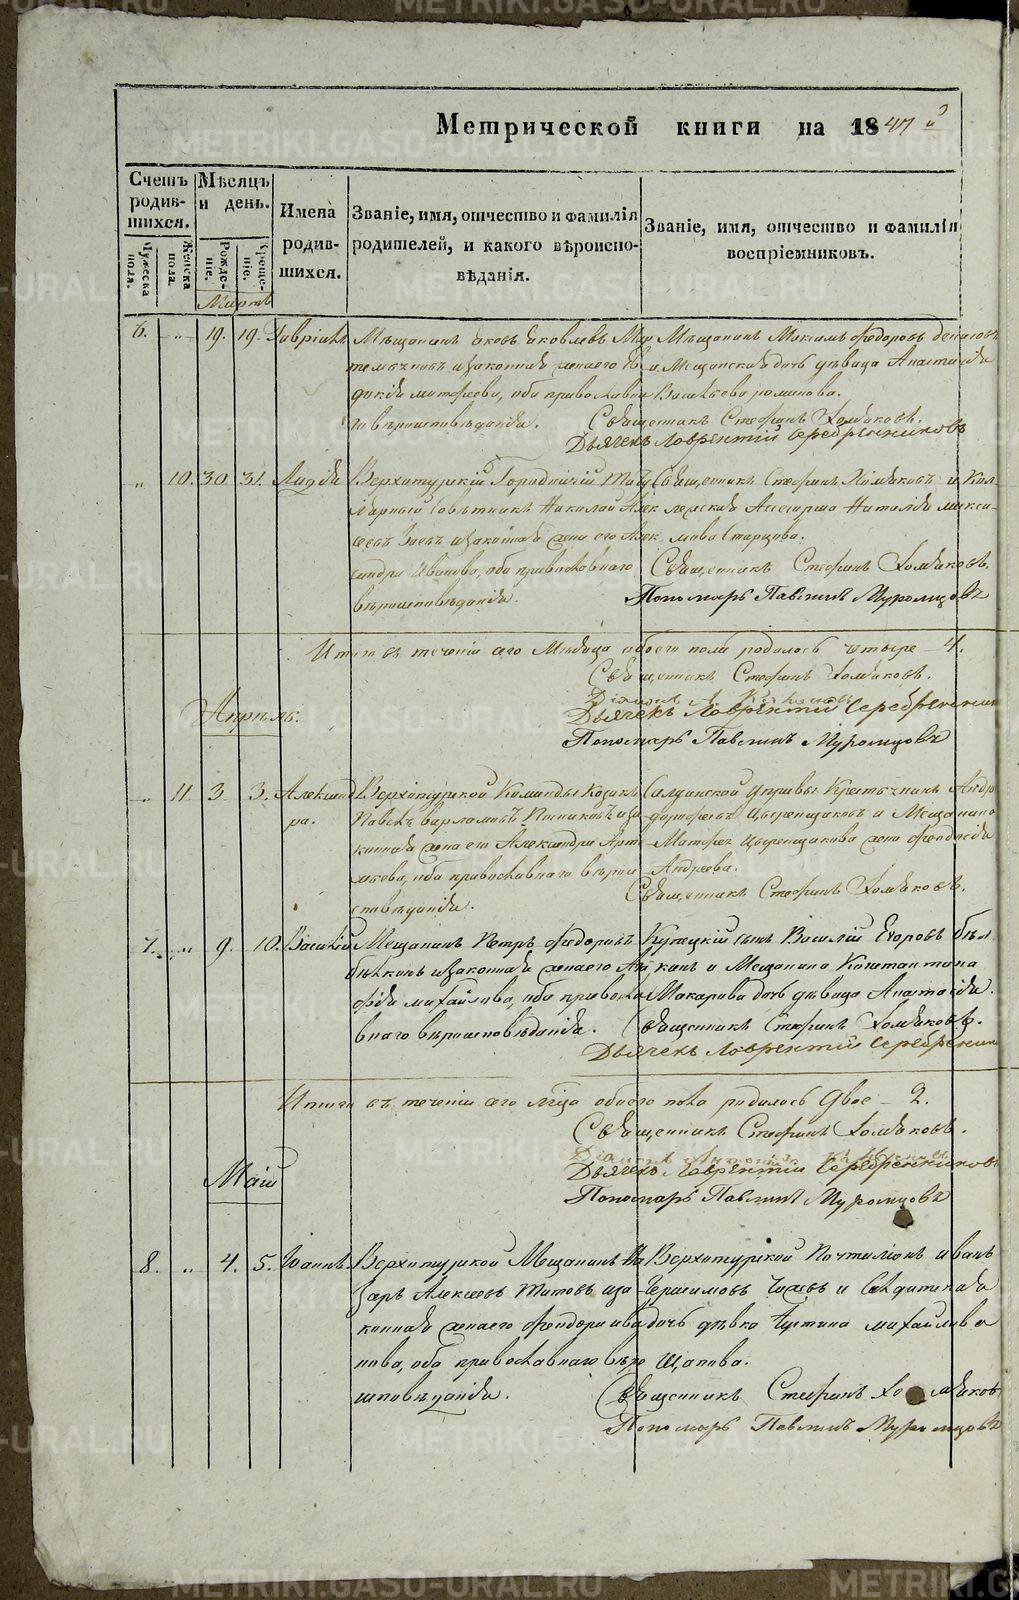 Метрической книги на 1847й
Счетъ родившихся.
Мѣсяцъ и день.
Имена родившихся.
Званіе, имя, отчество и фамилія родителей, и какого вѣроисповѣданія.
Званіе, имя, отчество и фамилія воспріемниковъ.
Мужеска пола.
Женска пола.
Рожденіе.
Крещеніе.
Мартъ
6. „ 19. 19. Гавріилъ
Мѣщанинъ Яковъ Яковлевъ
законная жена его Евдокія Матфеева, оба православнаго вѣроисповѣданія.
Мѣщанинъ Максимъ Федоровъ
и Мещанская дочь дѣвица Анастасія
Васильева Романова.
Священникъ Стефанъ Хомяковъ.
Дьячекъ Лаврентій Серебренниковъ
„ 10. 30 31. Лидія
Верхотурскій Городничій Титулярный Совѣтникъ Николай Алексѣевъ
законная жена его Александра Иванова, оба православнаго
вѣроисповѣданія.
Священникъ Стефанъ Хомяковъ и Коллежская Ассесорша Наталія Максимова Старцова.
Священникъ Стефанъ Хомяковъ.
Пономарь Павлинъ Муромцовъ
Итого въ теченіи сего Мѣсяца обоего пола родилось четыре – 4.
Священникъ Стефанъ Хомяковъ.
Дьячекъ Лаврентій Серебренник
Пономарь Павлинъ Муромцовъ
Апрѣль.
„ 11. 3 3. Александра.
Верхотурской Команды Козакъ
Павелъ Варламовъ Постниковъ законная жена его Александра Артемьева, оба православнаго вѣроисповѣданія.
Салдинской Управы Крестьянинъ Андрей
Дорофеевъ и Мещанина
Матфея жена Феодосія
Андреева.
Священникъ Стефанъ Хомяковъ.
7. „ 9. 10. Василій
Мещанинъ Петръ Федоровъ
законная жена его
Михайлова, оба православнаго вѣроисповѣданія.
Купецкій сынъ Василій Егоровъ
и Мещанина Константина
Макарова дочь дѣвица Анастасія.
Священникъ Стефанъ Хомяковъ.
Дьячекъ Лаврентій Серебренник
Итого въ теченіи сего мѣсяца обоего пола родилось двое – 2.
Священникъ Стефанъ Хомяковъ.
Дьячекъ Лаврентій Серебренниковъ
Пономарь Павлинъ Муромцовъ
Май
8. „ 4. 5. Іоаннъ.
Верхотурской Мещанинъ Назаръ Алексеевъ Титовъ законная жена его Феодора Иванова, оба православнаго вѣроисповѣданія.
Верхотурской Почталіонъ Иванъ
Герасимовъ и Солдатская
дочь дѣвка Устина Михайлова
Щапова.
Священникъ Стефанъ Хомяковъ
Пономарь Павлинъ Муромцовъ
METRIKI.GASO-URAL.RU